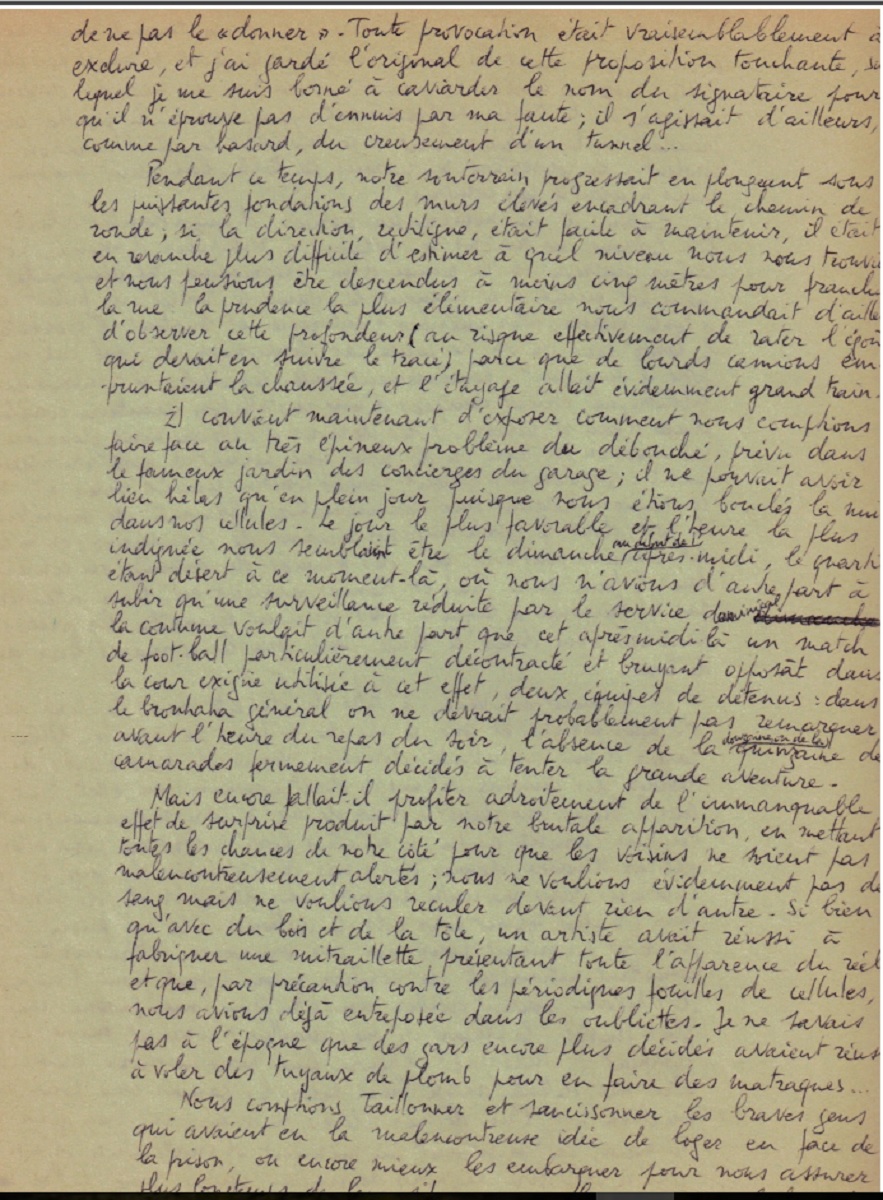 de ne pas le « donner ». Toute provocation était vraisemblablement à
exclure, et j'ai gardé l'original de cette proposition touchante, su
lequel je me suis borné à caviarder le nom du signataire pour
qu'il n'éprouve pas d'ennuis par ma faute ; il s'agissait d'ailleurs,
comme par hasard, du creusement d'un tunnel...
Pendant ce temps, notre souterrain progressait en plongeant sous
les puissantes fondations des murs élevés encadrant le chemin de
ronde ; si la direction, rectiligne, était facile à maintenir, il était
en revanche plus difficile d'estimer à quel niveau nous nous trouvi
et nous pensions être descendus à moins cinq mètres pour franch
la rue la prudence la plus élémentaire nous commandait d'aille
d'observer cette profondeur (au risque effectivement de rater l'égoû
qui devait en suivre le tracé) parce que de lourds camions em-
pruntaient la chaussée, et l'étayage allait évidemment grand train.
Il convient maintenant d'exposer comment nous comptions
faire face au très épineux problème du débouché, prévu dans
le fameux jardin des concierges du garage ; il ne pouvait avoir
lieu hélas qu'en plein jour puisque nous étions bouclés la nui
dans nos cellules. Le jour le plus favorable et l'heure la plus
indiquée nous semblaient être le dimanche au début de l'après-midi, le quarti
étant désert à ce moment-là, où nous n'avions d'autre part à
subir qu'une surveillance réduite par le service dominical
la coutume voulait d'autre part que cet après midi là un match
de foot-ball particulièrement décontracté et bruyant opposât dans
la cour exigue utilisée à cet effet, deux équipes de détenus : dans
le brouhaha général on ne devrait probablement pas remarquer
avant l'heure du repas du soir, l'absence de la douzaine ou de la quinzaine de
camarades fermement décidés à tenter la grande aventure.
Mais encore fallait-il profiter adroitement de l'immanquable
effet de surprise produit par notre brutale apparition, en mettant
toutes les chances de notre côté pour que les voisins ne soient pas
malencontreusement alertés ; nous ne voulions évidemment pas de
sang mais ne voulions reculer devant rien d'autre. Si bien
qu'avec du bois et de la tôle, un artiste avait réussi à
fabriquer une mitraillette présentant toute l'apparence du réel
et que, par précaution contre les périodiques fouilles de cellules,
nous avions déjà entreposée dans les oubliettes. Je ne savais
pas à l'époque que des gars encore plus décidés avaient réuss
à voler des tuyaux de plomb pour en faire des matraques...
Nous comptions baillonner et saucissonner les braves gens
qui avaient eu la malencontreuse idée de loger en face de
la prison, ou encore mieux les embarquer pour nous assurer
plus longtemps de leur